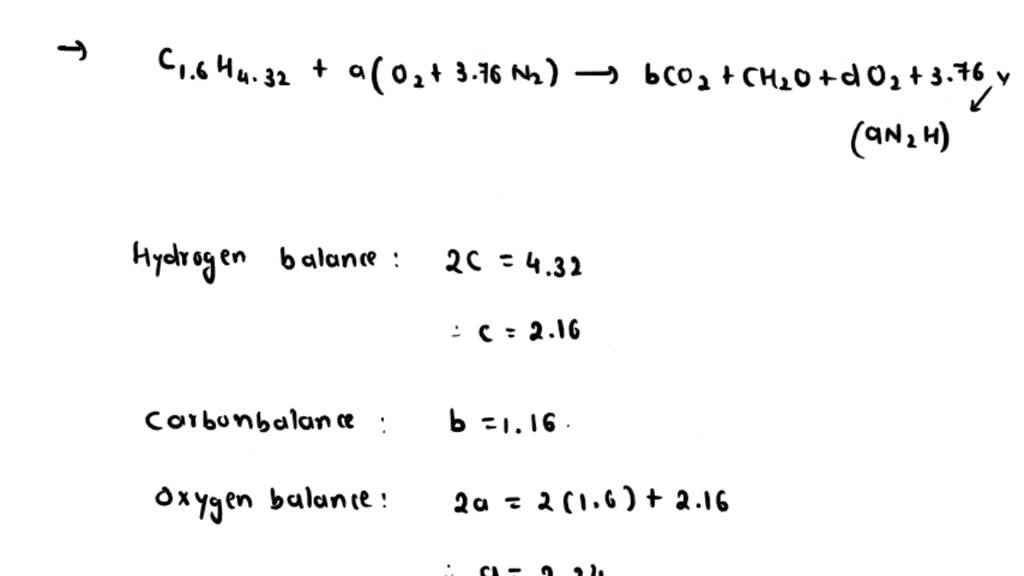 → C1.6H4.32 + a(O2 + 3.76 N2) → bCO2 + CH2O + dO2 + 3.76
(aN2H)
Hydrogen balance : 2C = 4.32
∴ C = 2.16
Carbonbalance : b = 1.16.
Oxygen balance : 2a = 2(1.6) + 2.16